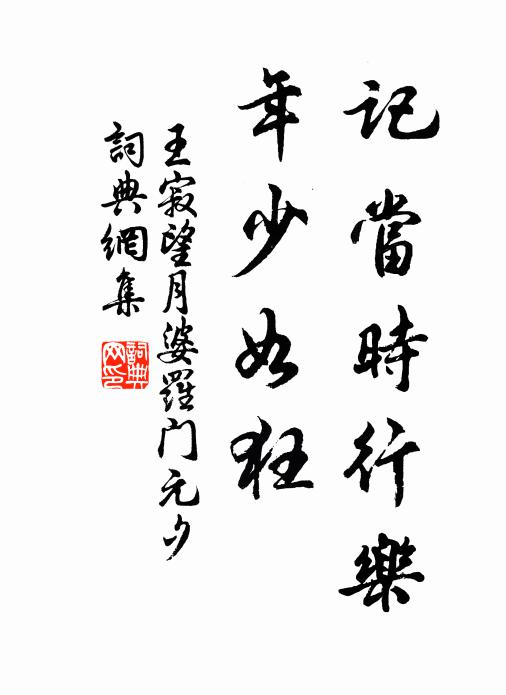 記當時行樂
年少如狂
王寂望月婆羅門元夕
詞典網集
詞典网印